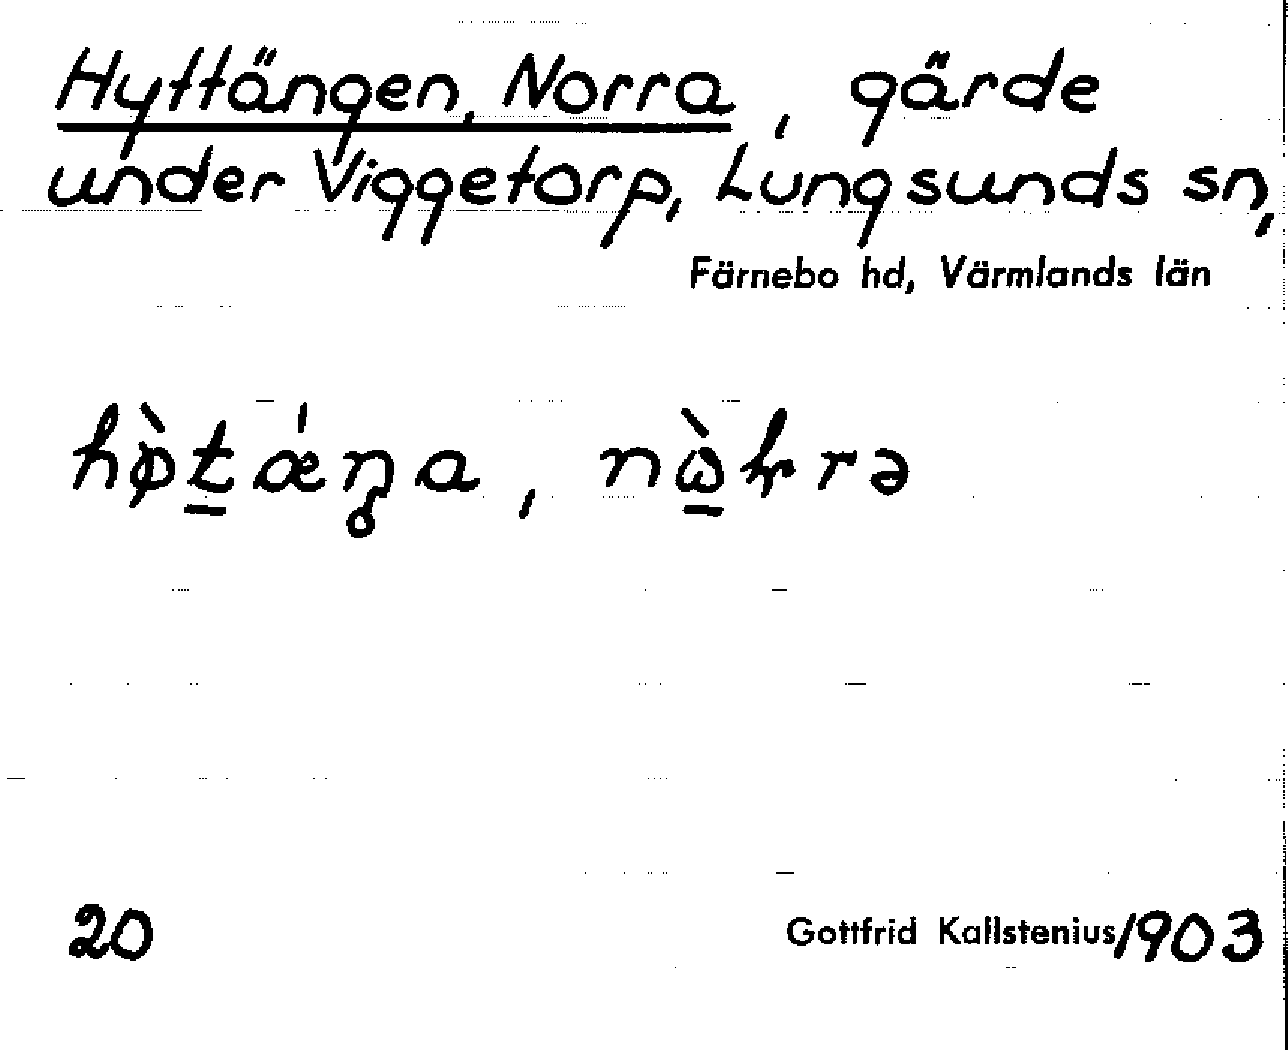 Hyttängen, Norra, gärde
under Viggetorp, Lungsunds sn,
Färnebo hd, Värmlands län
20
Gottfrid Kallstenius 1903